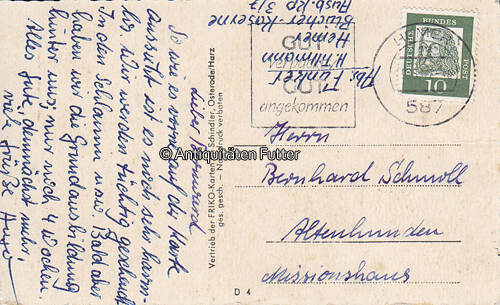 Lieber Bernward
So wie es vorn auf der Karte
aussieht ist es noch sehr harm-
los. Wir werden tüchtig geschunden
in den Schlamm und. Bald aber
haben wir die Grundausbildung
hinter uns; nur noch 4 Wochen.
Alles Gute, demnächst mehr,
viele Grüße
Abs. Funker
H. Tillmann
Hemer
Blücher-Kaserne
Ausb. Kp. 3/7
GUT
verpackt
GUT
angekommen
HEMER
587
DEUTSCHE
BUNDES
POST
10
Vertrieb der FRIKO-Karten Schindler, Osterode/Harz
ges. gesch. – Nachdruck verboten
© Antiquitäten Futter
Herrn
Bernhard Schmoll
Altenhunden
Missionshaus
D 4